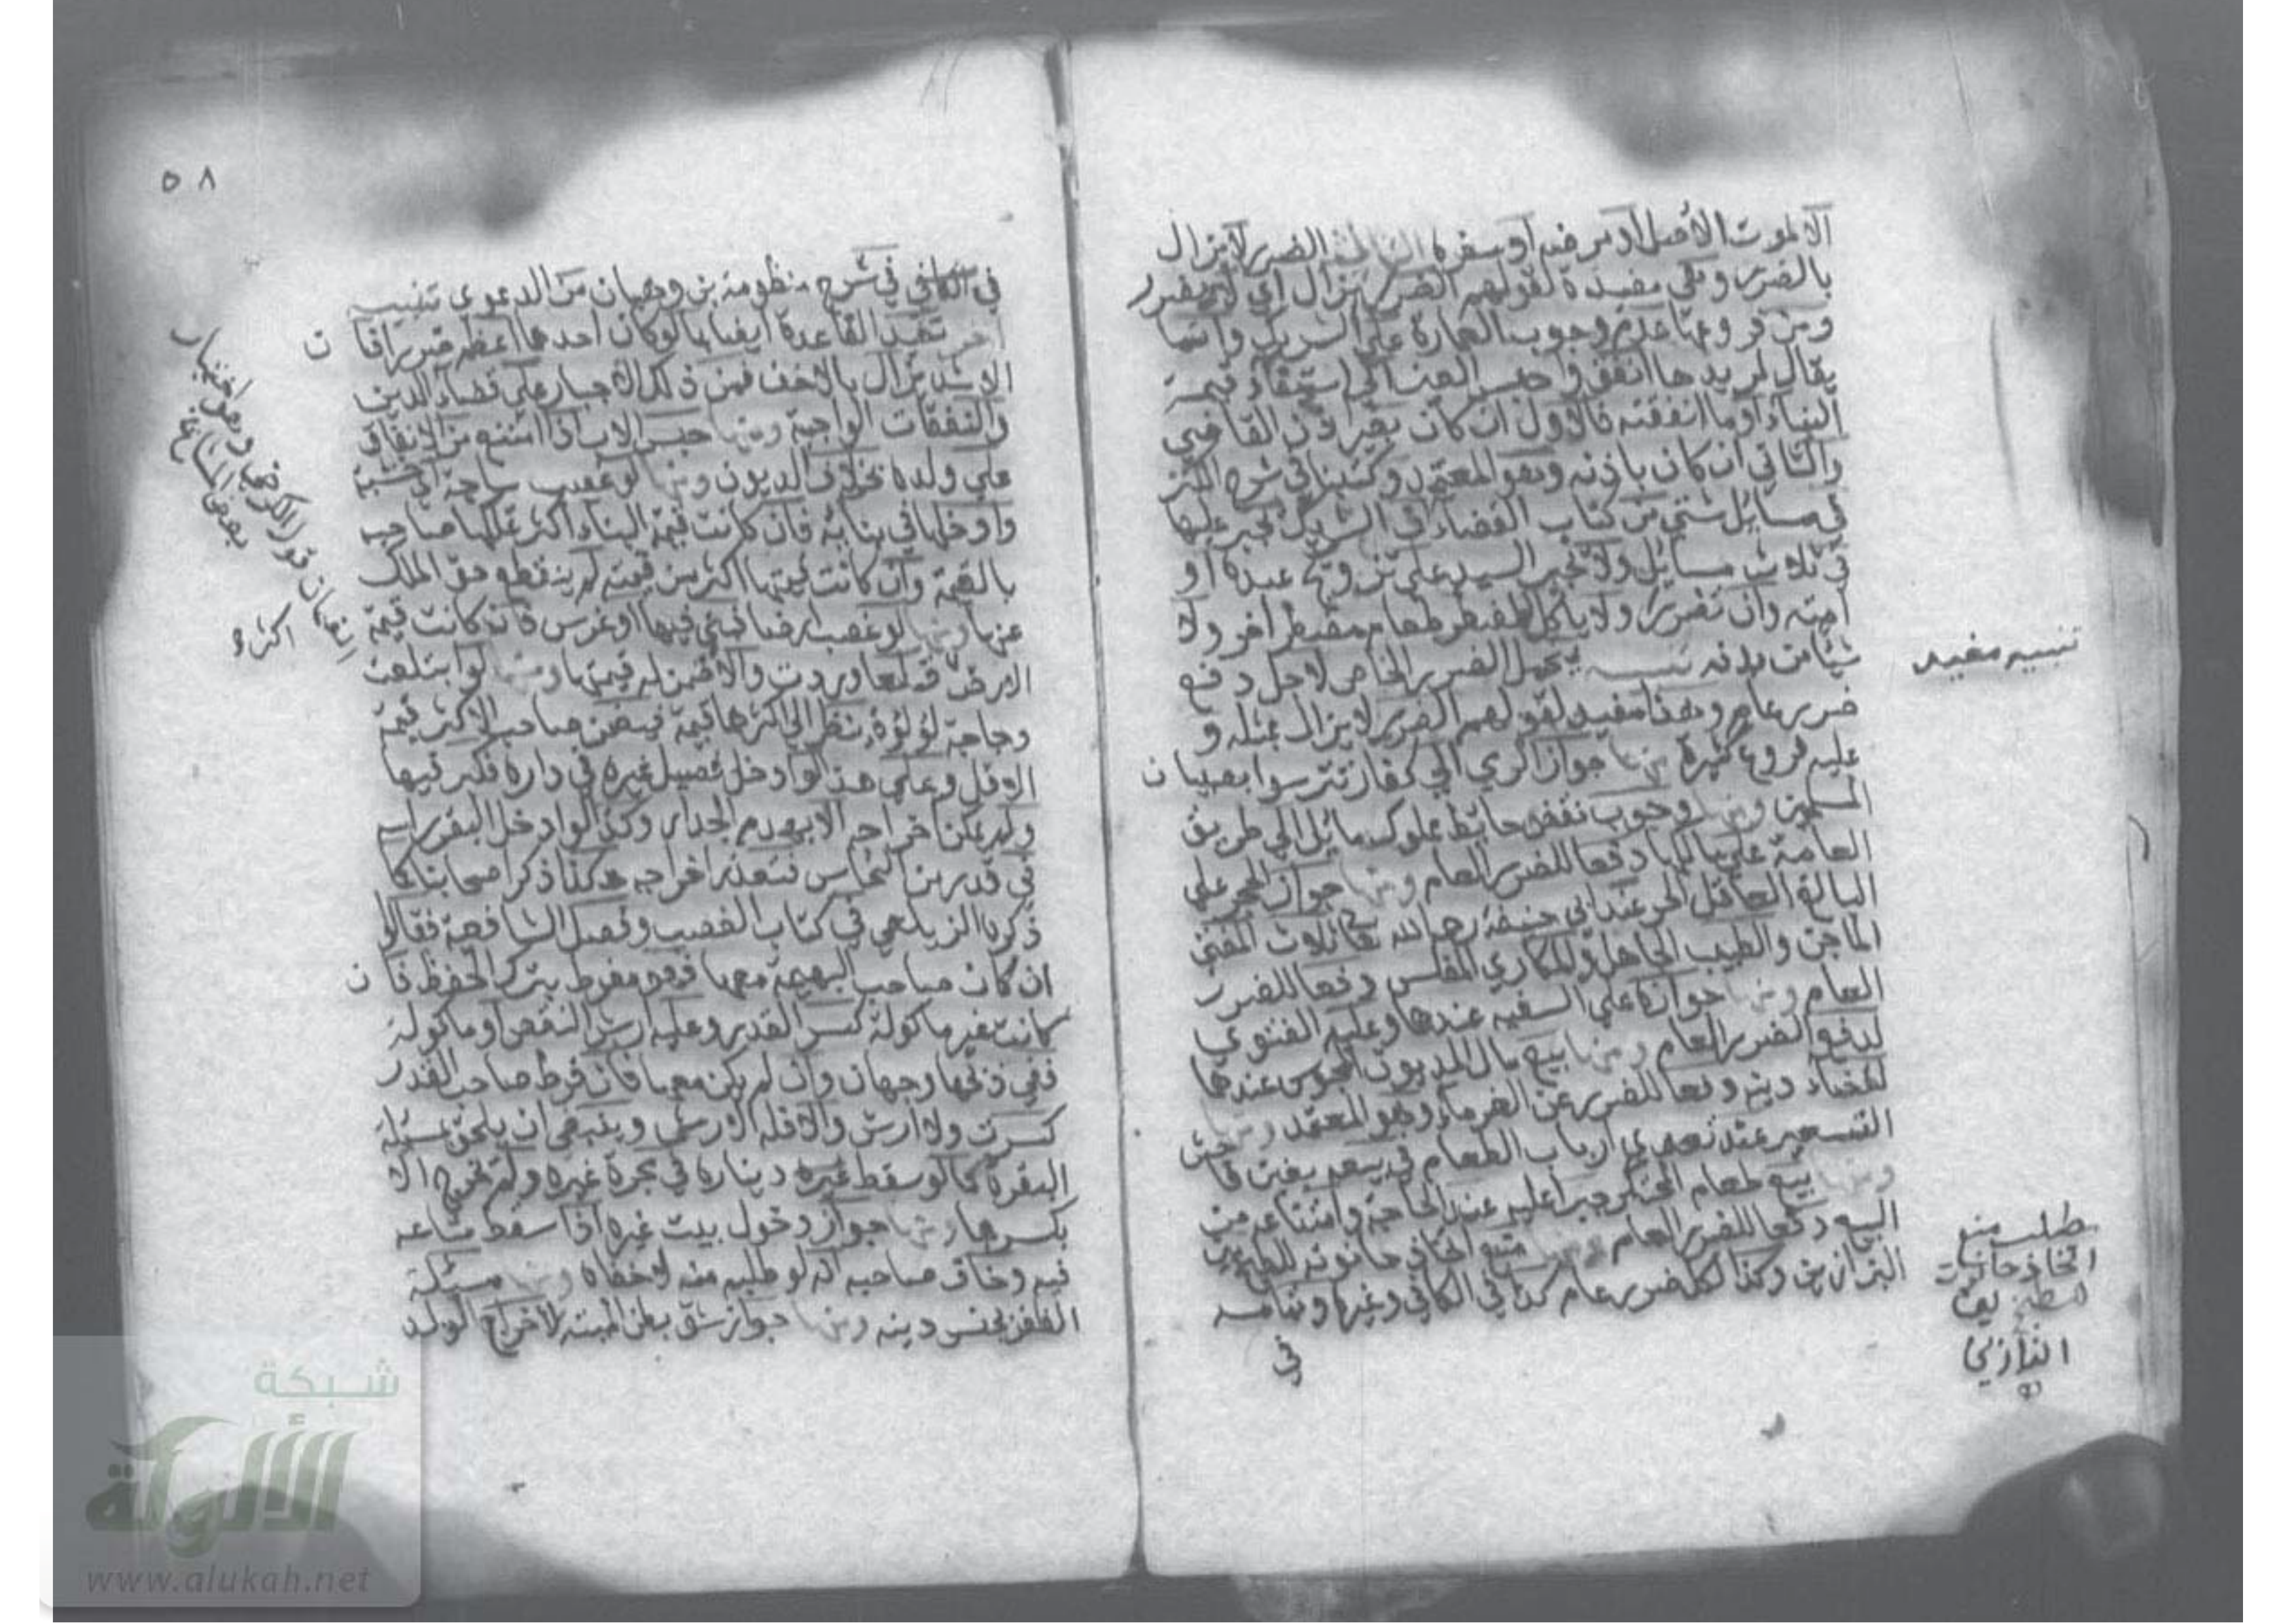 الا لموت الأصل او مرضه او سفره الثالثة الضرر لا يزال
بالضرر وهي مقيدة لقولهم الضرر يزال اي لا بضرر
ومن فروعها عدم وجوب العمارة علي الشريك وانما
يقال لمريدها انفق واحبس العين الي استيفاء قيمة
البناء او ما انفقته فالاول ان كان بغير اذن القاضي
والثاني ان كان باذنه وهو المعتمد وكتبنا في شرح الكنز
في مسائل شتي من كتاب القضاء ان الشريك يجبر عليها
في ثلاث مسائل ولا يجبر السيد علي تزويج عبده او
امته وان تضررا ولا ياكل المضطر طعام مضطر اخر ولا
شيأ من بدنه تنبيه يتحمل الضرر الخاص لاجل دفع
ضرر عام وهذا مقيد لقولهم الضرر لا يزال بمثله و
عليه فروع كثيرة منها جواز الرمي الي كفار تترسوا بصبيان
المسلمين ومنها وجوب نقض حايط مملوك مائل الي طريق
العامة علي مالكها دفعا للضرر العام ومنها جواز الحجر علي
البالغ العاقل الحر عند ابي حنيفة رحمه الله تعا ثلاث المفتي
الماجن والطبيب الجاهل والمكاري المفلس دفعا للضرر
العام ومنها جوازه علي السفيه عندهما وعليه الفتوي
لدفع الضرر العام ومنها بيع مال المديون المحبوس عندهما
لقضاء دينه دفعا للضرر عن الغرماء وهو المعتمد ومنها
التسعير عند تعدي ارباب الطعام في بيعه بغبن فاحش
ومنها بيع طعام المحتكر جبرا عليه عند الحاجة وامتناعه من
البيع دفعا للضرر العام ومنها منع اتخاذ حانوته للطبخ بين
البزازين وكذا لكل ضرر عام كذا في الكافي وغيره وتمامه
في
تنبيه مفيد
مطلب منع
اتخاذ حانوت
للطبخ بين
البزازين
٥٨
في الكافي في شرح منظومة بن وهبان من الدعوي تنبيه
اخر تقيد القاعدة ايضا بما لو كان احدهما اعظم ضررا فان
الاشد يزال بالاخف فمن ذلك الاجبار علي قضاء الدين
والنفقات الواجبة ومنها حبس الاب اذا امتنع من الانفاق
علي ولده بخلاف الديون ومنها لو غصب ساجة اي خشبة
وادخلها في بنائه فان كانت قيمة البناء اكثر تملكها صاحبه
بالقيمة وان كانت قيمتها اكثر من قيمته لم ينقطع حق الملك
عنها ومنها لو غصب ارضا فبني فيها او غرس فان كانت قيمة
الارض قلعا وردت والا ضمن له قيمتها ومنها لو ابتلعت
دجاجة لؤلؤة ينظر الي اكثرها قيمة فيضمن صاحب الاكثر قيمة
الاقل وعلي هذا لو ادخل فصيل غيره في داره فكبر فيها
ولم يمكن اخراجه الا بهدم الجدار وكذا لو ادخل البقر راسه
في قدر من النحاس فتعذر اخراجه هكذا ذكر اصحابنا كما
ذكره الزيلعي في كتاب الغصب وفصل الشافعية فقالوا
ان كان صاحب البهيمة معها فهو مفرط بترك الحفظ فان
كانت غير ماكولة كسر القدر وعليه ارش النقص او ماكولة
ففي ذبحها وجهان وان لم يكن معها فان فرط صاحب القدر
كسرت ولا ارش والا فله الارش وينبغي ان يلحق بمسئلة
البقرة ما لو سقط ديناره في محبرة غيره ولم يخرج الا
بكسرها ومنها جواز دخول بيت غيره اذا سقط متاعه
فيه وخاف صاحبه انه لو طلبه منه لاخفاه ومنها مسئلة
الظفر بجنس دينه ومنها جواز شق بطن الميتة لاخراج الولد
قول الكرخي وهو اختيار
بعض المشايخ
اكثر
شبكة
الألوكة
www.alukah.net